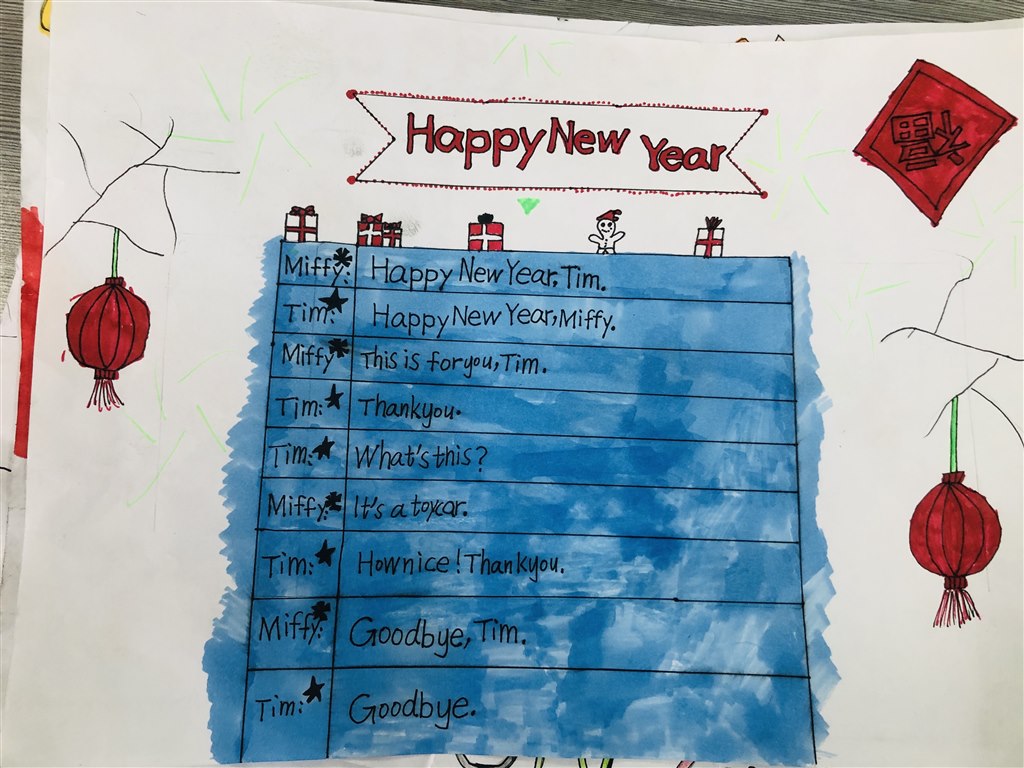 Happy New Year
福
Miffy: Happy New Year, Tim.
Tim: Happy New Year, Miffy.
Miffy: This is for you, Tim.
Tim: Thank you.
Tim: What's this?
Miffy: It's a toy car.
Tim: How nice! Thank you.
Miffy: Goodbye, Tim.
Tim: Goodbye.